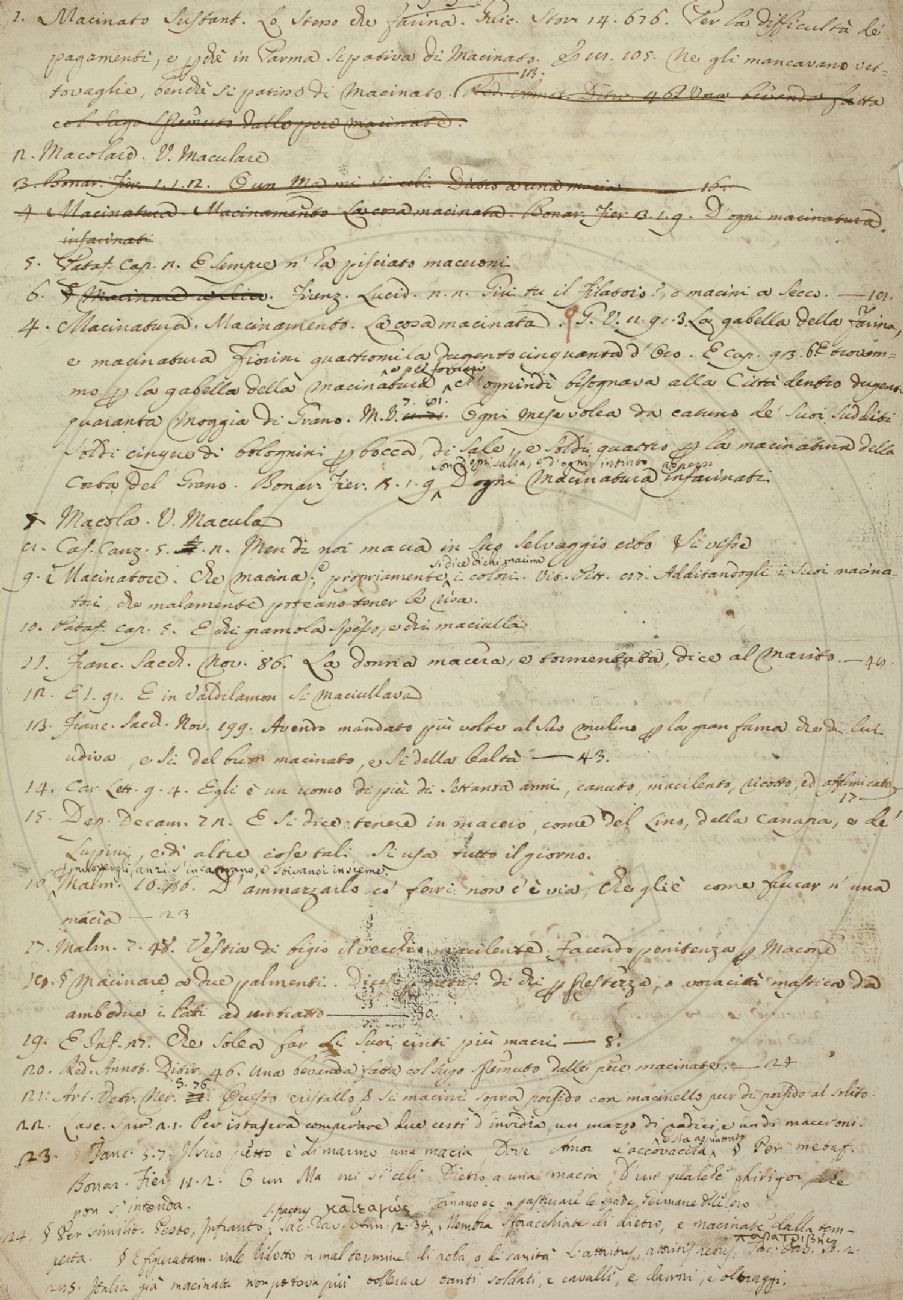 1. Macinato Sustant. Lo stesso che farina. Guic. Stor. 14. 676. Per la difficultà de'
pagamenti, e perchè in Parma si pativa di Macinato. E 105. Nè gli mancavano vet-
tovaglie, benchè si patisse di Macinato. Red. Annot. Ditir. 46. Una bevanda fatta
col sugo spremuto dalle pere macinate.
2. Macolare. V. Maculare
3. Bonar. Fier. 1. 1. 2. E un Ma mi si celi Dietro a una macia 16.
4 Macinatura Macinamento La cosa macinata. Bonar. Fier 3. 1. 9. D'ogni macinatura
infarinati
5. Pataf. Cap. 2. E sempre n'ha pisciato maceroni
6. § Macinare a secco. Firenz. Lucid. 2. 2. Giri tu il filatoio?, o macini a secco. — 19.
4. Macinatura. Macinamento. La cosa macinata. G. V. 11. 91. 3. La gabella della farina,
e macinatura Fiorini quattromila dugentocinquanta d'Oro. E cap. 93. 6. E trovam-
mo per la gabella della macinatura, e per fornai ch'ognindì bisognava alla Città dentro dugent
quaranta moggia di Grano. M. V. 7. Ogni mese volea da catuno de' suoi sudditi
soldi cinque di bolognini per bocca, di sale, e soldi quattro per la macinatura della
Corba del Grano. Bonar. Fier. 3. 1. 9. D'ogni salsa, e d'ogni intinto D'ogni Macinatura infarinati.
Macola. V. Macula
Cas. Canz. 5. 2. Men di noi macra in suo selvaggio cibo Si visse
9. Macinatore. Che macina: e propriamente si dice di chi macina i colori. Vit. Pitt. 87. Additandogli i suoi macina-
tori, che malamente poteano tener le risa.
10. Pataf. Cap. 5. E chi gramola spesso, e chi maciulla
11. Franc. Sacch. Nov. 86. La donna macera, e tormentata, dice al Marito. — 40.
12. E 1. 91. E in Valdilamon si maciullava
13. Franc. Sacch. Nov. 199. Avendo mandato più volte al suo mulino per la gran fama che di lui
udiva, e sì del buon macinato, e sì della lealtà — 43.
14. Car. Lett. 9. 4. Egli è un uomo di più di settanta anni, canuto, macilento, ricotto, ed affumicato
17
15. Dep. Decam. 72. E si dice tenere in macero, come del Lino, della Canapa, e de'
Lupini, e di altre cose tali si usa tutto il giorno.
16. Malm. 10. D'ammazzarlo co' ferri non c'è via, Che gli è come ficcar n'una
macia — 23
17. Malm. 7. 48. Vestia di bigio il vecchio macilente Facendo penitenza per Macone
18. § Macinare a due palmenti. Dicesi di chi per prestezza, o voracità mastica da
ambedue i lati ad un tratto — 30.
19. E Inf. 27. Che solea far li suoi cinti più macri — 8.
20. Red. Annot. Ditir. 46. Una bevanda fatta col sugo spremuto delle pere macinate. — 24
21. Art. Vetr. Ner. 5. 76. Questo cristallo si macini sopra porfido con macinello pur di porfido al solito.
22. Lasc. Streg. 2. 1. Per istasera comperare due cesti d'indivia, un mazzo di radici, e undi maceroni.
23. Franc. 5. 7. Il suo petto è di marmo una macia, Dove Amor s'accovaccia, § Per metaf.
Bonar. Fier. 1. 1. 2. E un Ma mi si celi Dietro a una macia D'un qualche ghirigor, che
non s'intenda.
24. § Per similit. Pesto, Infranto. Tac. Dav. Ann. 2. 34. Membra sfracchiate di dietro, e macinate dalla tem-
pesta. § E figuratam. vale Ridotto in mal termine di roba, o di sanità Lat. attritus
295. Italia già macinata non poteva più tollerare tanti soldati, e cavalli, e danni, e oltraggi.